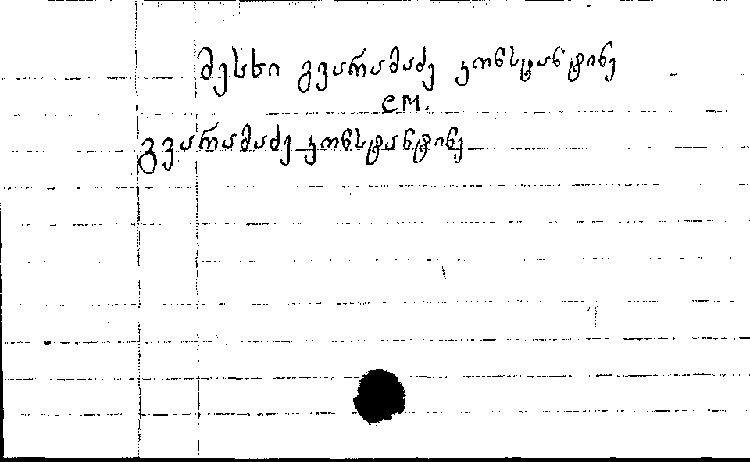 მესხი გვარამაძე კონსტანტინე
см.
გვარამაძე კონსტანტინე